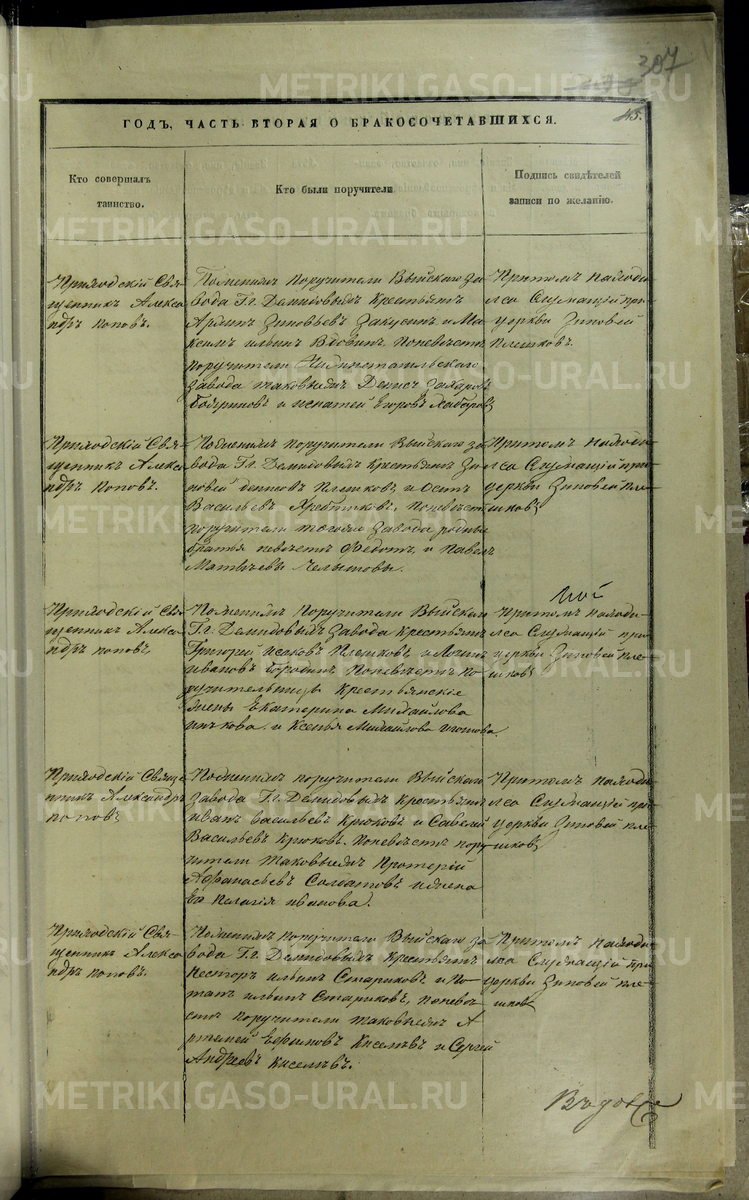 307
45.
ГОДЪ, ЧАСТЬ ВТОРАЯ О БРАКОСОЧЕТАВШИХСЯ.
Кто совершалъ
таинство.
Кто были поручители
Подпись свидѣтелей
записи по желанію.
Приходскій Свя-
щенникъ Алекса-
ндръ Поповъ.
По женихѣ поручители Выйскаго за
вода Гг. Демидовыхъ крестьянъ
Зиновьевъ Закусинъ и Ма-
ксимъ Ильинъ Вдовинъ. По невѣстѣ
поручители Нижнетагильскаго
завода Денисъ Захаровъ
и Игнатей Егоровъ Хабаровъ
При томъ находи-
лса Служащій при
церкви Зиновей
Плешковъ.
Приходскій Свя-
щенникъ Алекса-
ндръ Поповъ.
По женихѣ поручители Выйскаго за-
вода Гг. Демидовыхъ крестьянъ Зи-
новей Плешковъ и Осипъ
Васильевъ По невѣстѣ
поручители тогоже Завода родные
братья невѣсты Федотъ и Павелъ
Матвѣевы Челышовы.
При томъ находи-
лса Служащій при
церкви Зиновей Пле-
шковъ
Приходскій Свя-
щенникъ Алекса-
ндръ Поповъ.
По женихѣ поручители Выйскаго
Гг. Демидовыхъ Завода крестьянъ
Григорей Исаковъ Плешковъ и
Ивановъ Бородинъ По невѣстѣ по-
ручительницы крестьянскіе
жены Екатерина Михайлова
и Ксенья Михайлова
При томъ находи-
лса Служащій при
церкви Зиновей Пле-
шковъ
Приходскій Свяще-
нникъ Александръ
Поповъ
По женихѣ поручители Выйскаго
Завода Гг. Демидовыхъ крестьянъ
Иванъ Васильевъ Крюковъ и Савелей
Васильевъ Крюковъ. По невѣстѣ пору-
чители Протерій
Афанасьевъ Солдатовъ и жена
Ево Пелагія Иванова.
При томъ находи-
лса Служащій при
церкви Зиновей Пле-
шковъ
Приходскій Свя-
щенникъ Алекса-
ндръ Поповъ.
По женихѣ поручители Выйскаго за-
вода Гг. Демидовыхъ крестьянъ
Несторъ Ильинъ Стариковъ и По-
тапъ Ильинъ Стариковъ, по невѣ-
стѣ поручители А-
ртемей Ефимовъ Киселѣвъ и Сергей
Андреевъ Киселѣвъ.
При томъ находи-
лса Служащій при
церкви Зиновей Пле-
шковъ
METRIKI.GASO-URAL.RU
METRIKI.GASO-URAL.RU
METRIKI.GASO-URAL.RU
METRIKI.GASO-URAL.RU
METRIKI.GASO-URAL.RU
METRIKI.GASO-URAL.RU
METRIKI.GASO-URAL.RU